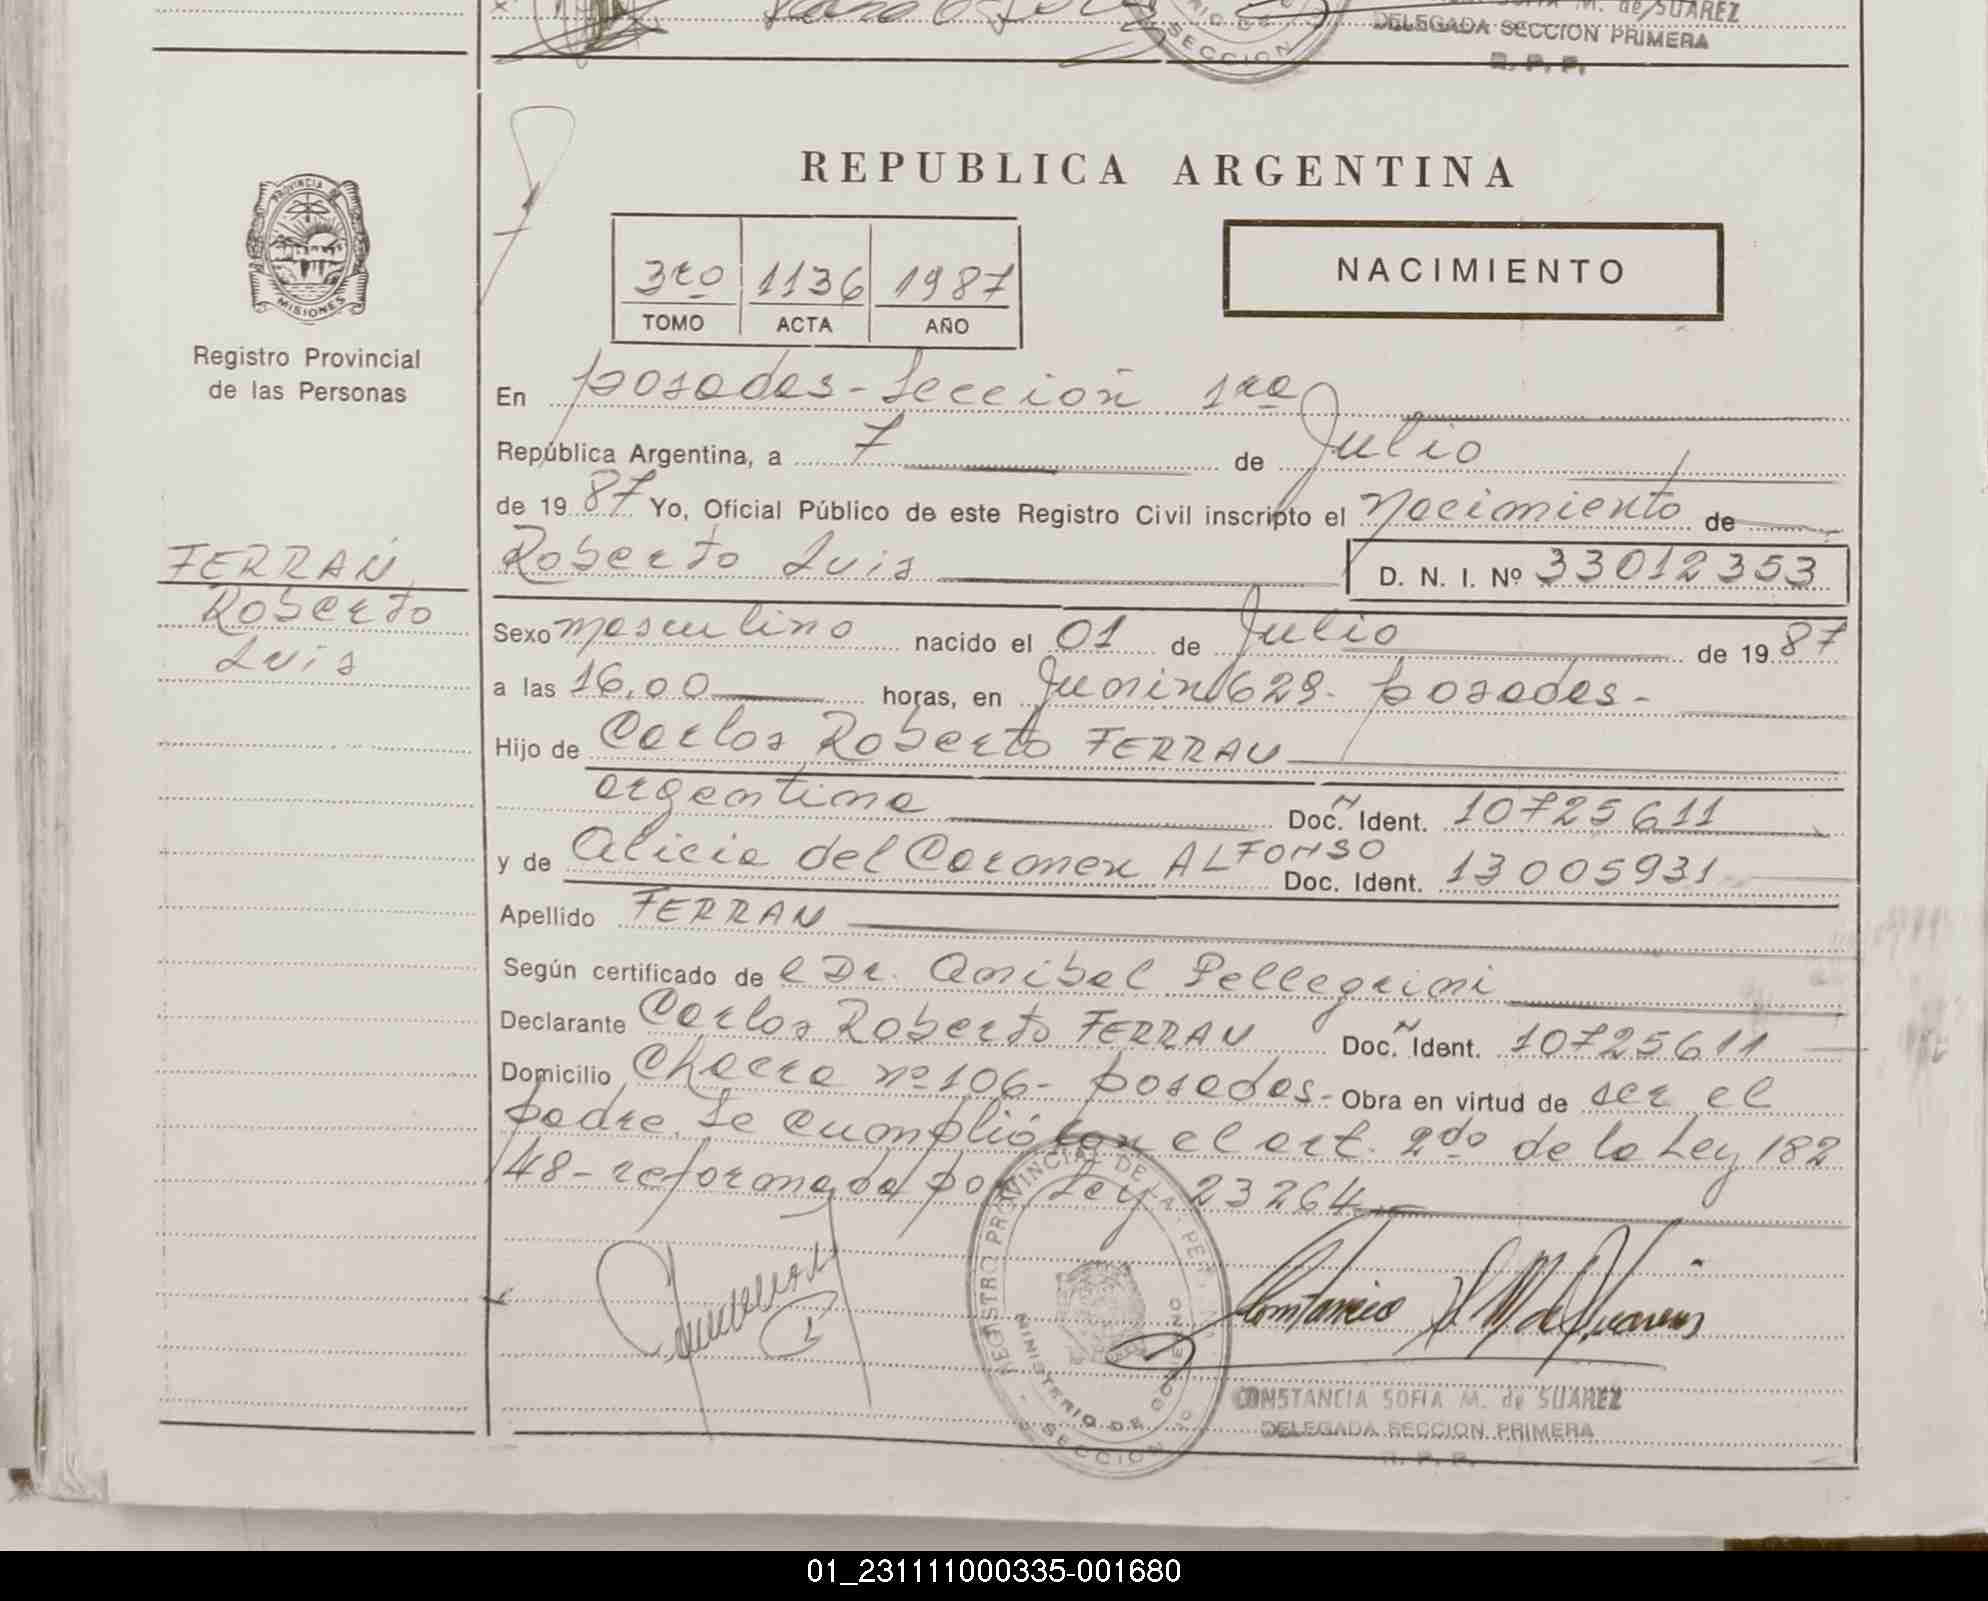 M. de SUAREZ
DELEGADA SECCION PRIMERA
R. P. P.
SECCION
REPUBLICA ARGENTINA
PROVINCIA DE
MISIONES
Registro Provincial
de las Personas
3ro 1136 1987
TOMO ACTA AÑO
NACIMIENTO
En posadas - Sección 1ra
República Argentina, a 7 de Julio
de 1987 Yo, Oficial Público de este Registro Civil inscripto el Nacimiento de
FERRAN
Roberto
Luis
Roberto Luis D. N. I. Nº 33012353
Sexo masculino nacido el 01 de Julio de 1987
a las 16,00 horas, en Junin 629 - posadas -
Hijo de Carlos Roberto FERRAN
argentino Doc. Ident. 10725611
y de Alicia del Carmen ALFONSO Doc. Ident. 13005931
Apellido FERRAN
Según certificado de el Dr. Anibal Pellegrini
Declarante Carlos Roberto FERRAN Doc. Ident. 10725611
Domicilio Chacra nº 106 - posadas - Obra en virtud de ser el
padre. Se cumplió con el art. 2do de la Ley 182
48 - reformada por Ley 23264
REGISTRO PROVINCIAL DE LA
MINISTERIO DE GOBIERNO
SECCION
Constancia S M de Suarez
CONSTANCIA SOFIA M. de SUAREZ
DELEGADA SECCION PRIMERA
R. P. P.
01_231111000335-001680